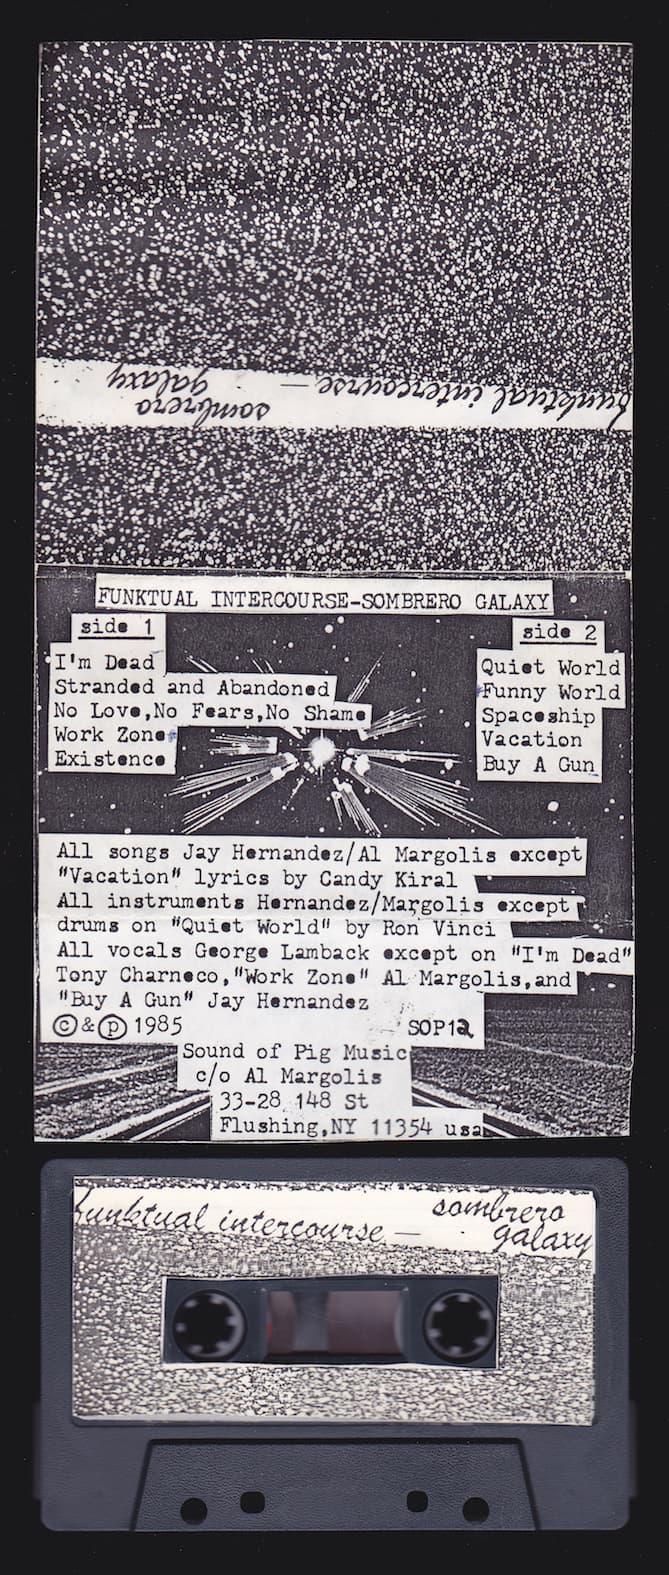 funktual intercourse — sombrero
galaxy
FUNKTUAL INTERCOURSE-SOMBRERO GALAXY
side 1
I'm Dead
Stranded and Abandoned
No Love,No Fears,No Shame
Work Zone
Existence
side 2
Quiet World
Funny World
Spaceship
Vacation
Buy A Gun
All songs Jay Hernandez/Al Margolis except
"Vacation" lyrics by Candy Kiral
All instruments Hernandez/Margolis except
drums on "Quiet World" by Ron Vinci
All vocals George Lamback except on "I'm Dead"
Tony Charneco,"Work Zone" Al Margolis,and
"Buy A Gun" Jay Hernandez
©&℗ 1985 SOP12
Sound of Pig Music
c/o Al Margolis
33-28 148 St
Flushing,NY 11354 usa
funktual intercourse — sombrero
galaxy